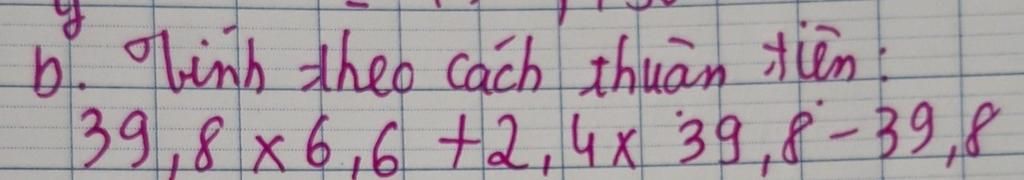 b. Tính theo cách thuận tiện:
39,8 x 6,6 + 2,4 x 39,8 - 39,8